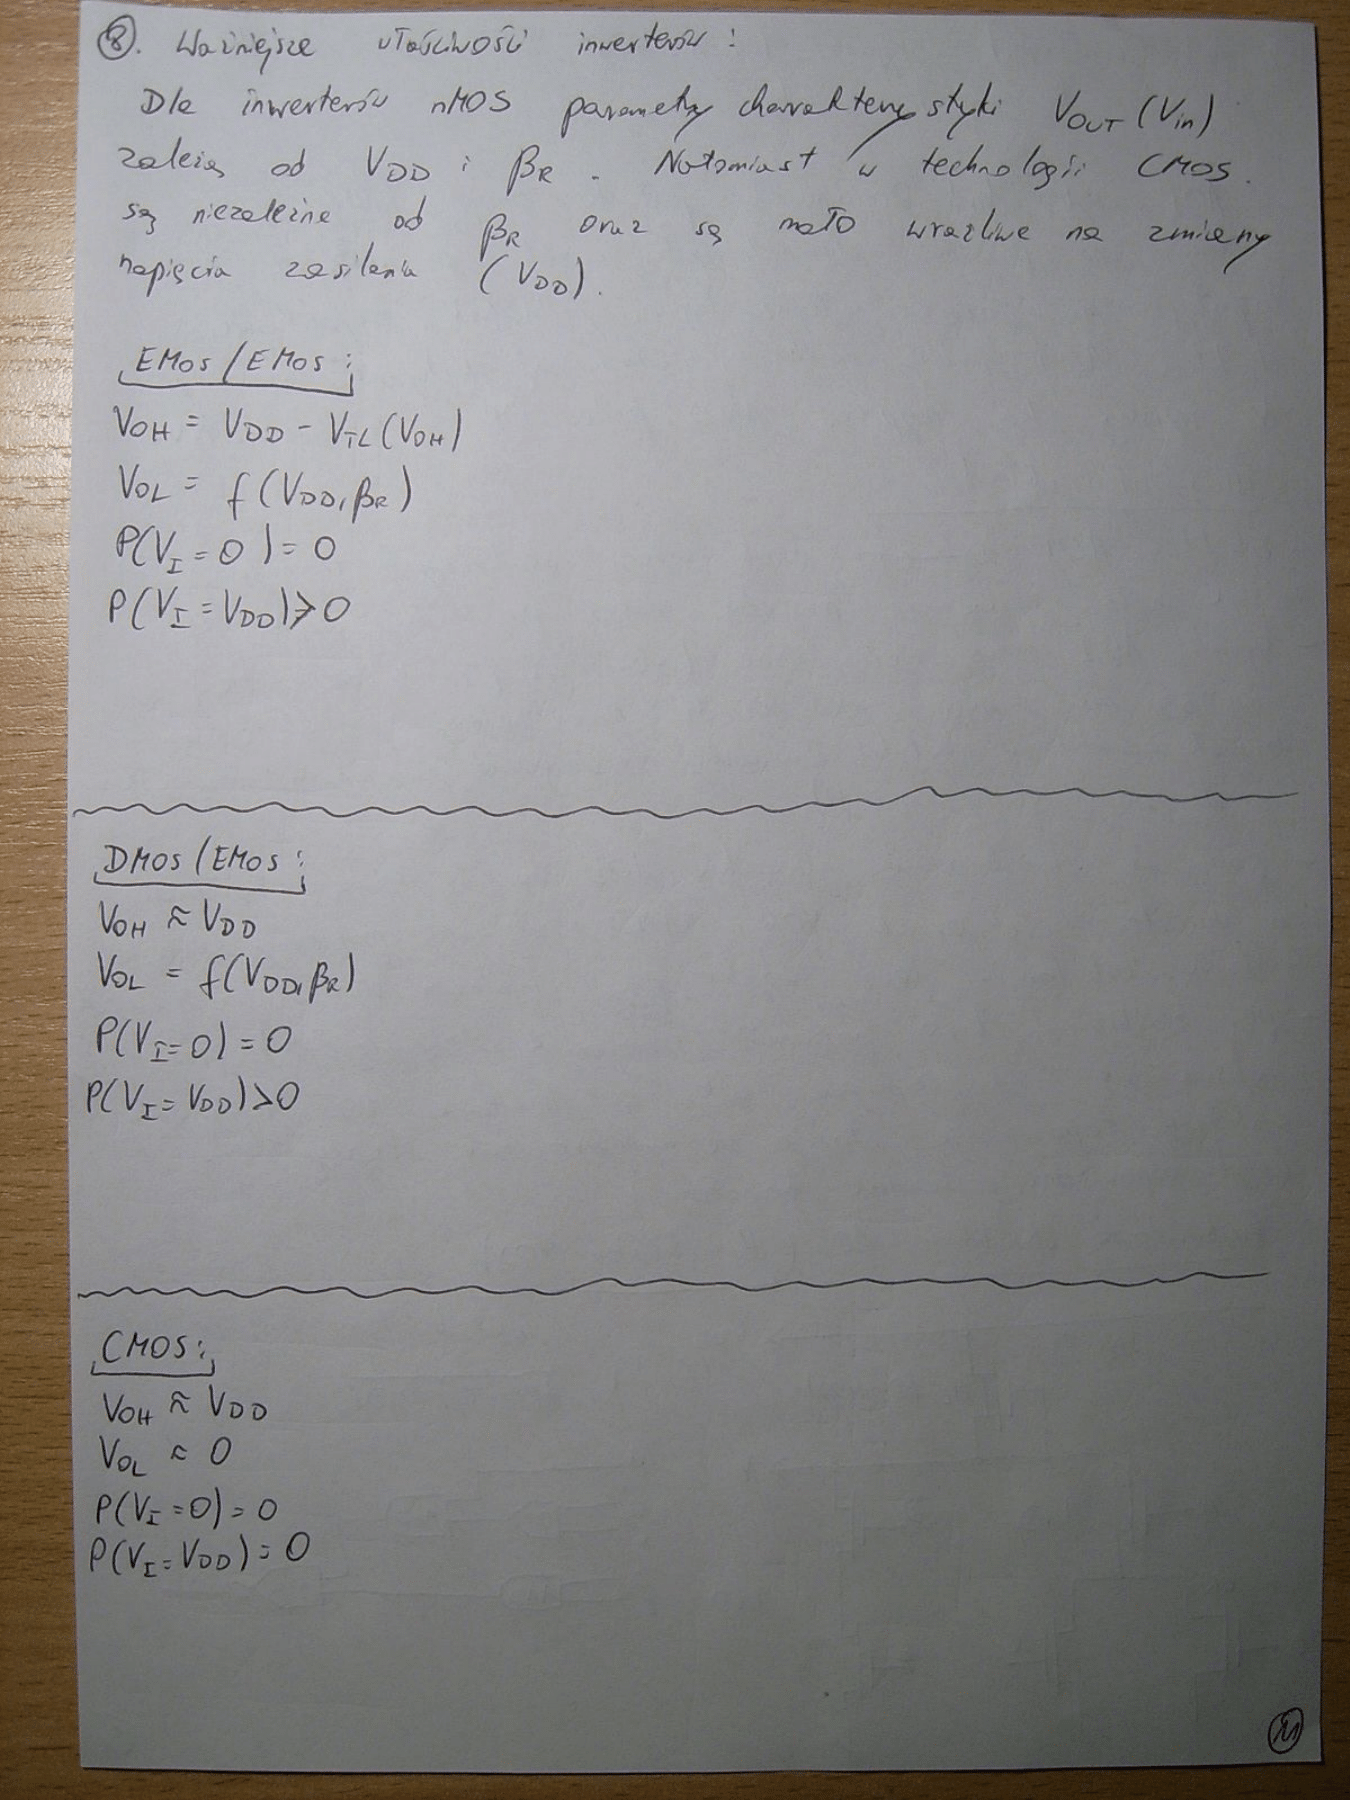 8. Ważniejsze właściwości inwerterów:
Dla inwerterów nMOS parametry charakterystyki V_OUT (V_in)
zależą od V_DD i β_R. Natomiast w technologii CMOS.
są niezależne od β_R oraz są mało wrażliwe na zmiany
napięcia zasilania (V_DD).
EMOS/EMOS:
V_OH = V_DD - V_TL(V_OH)
V_OL = f(V_DD, β_R)
P(V_I = 0) = 0
P(V_I = V_DD) > 0
DMOS/EMOS:
V_OH ≈ V_DD
V_OL = f(V_DD, β_R)
P(V_I = 0) = 0
P(V_I = V_DD) > 0
CMOS:
V_OH ≈ V_DD
V_OL ≈ 0
P(V_I = 0) = 0
P(V_I = V_DD) = 0